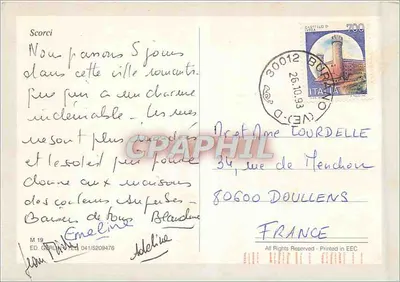 Scorci
Nous passons 5 jours
dans cette ville romanti-
que qui a un charme
indéniable. Les rues
ne sont plus inondées
et le soleil qui
donne aux maisons
des couleurs superbes.
Baisers de tous
Blandine
Emeline
Adeline
M 19
041/5209476
CASTELLO DI
700
ITALIA
30012 BURANO (VE)
26.10.93
CPAPHIL
Dr et Mme TOURDELLE
34, rue de Menchon
80600 DOULLENS
FRANCE
All Rights Reserved - Printed in EEC